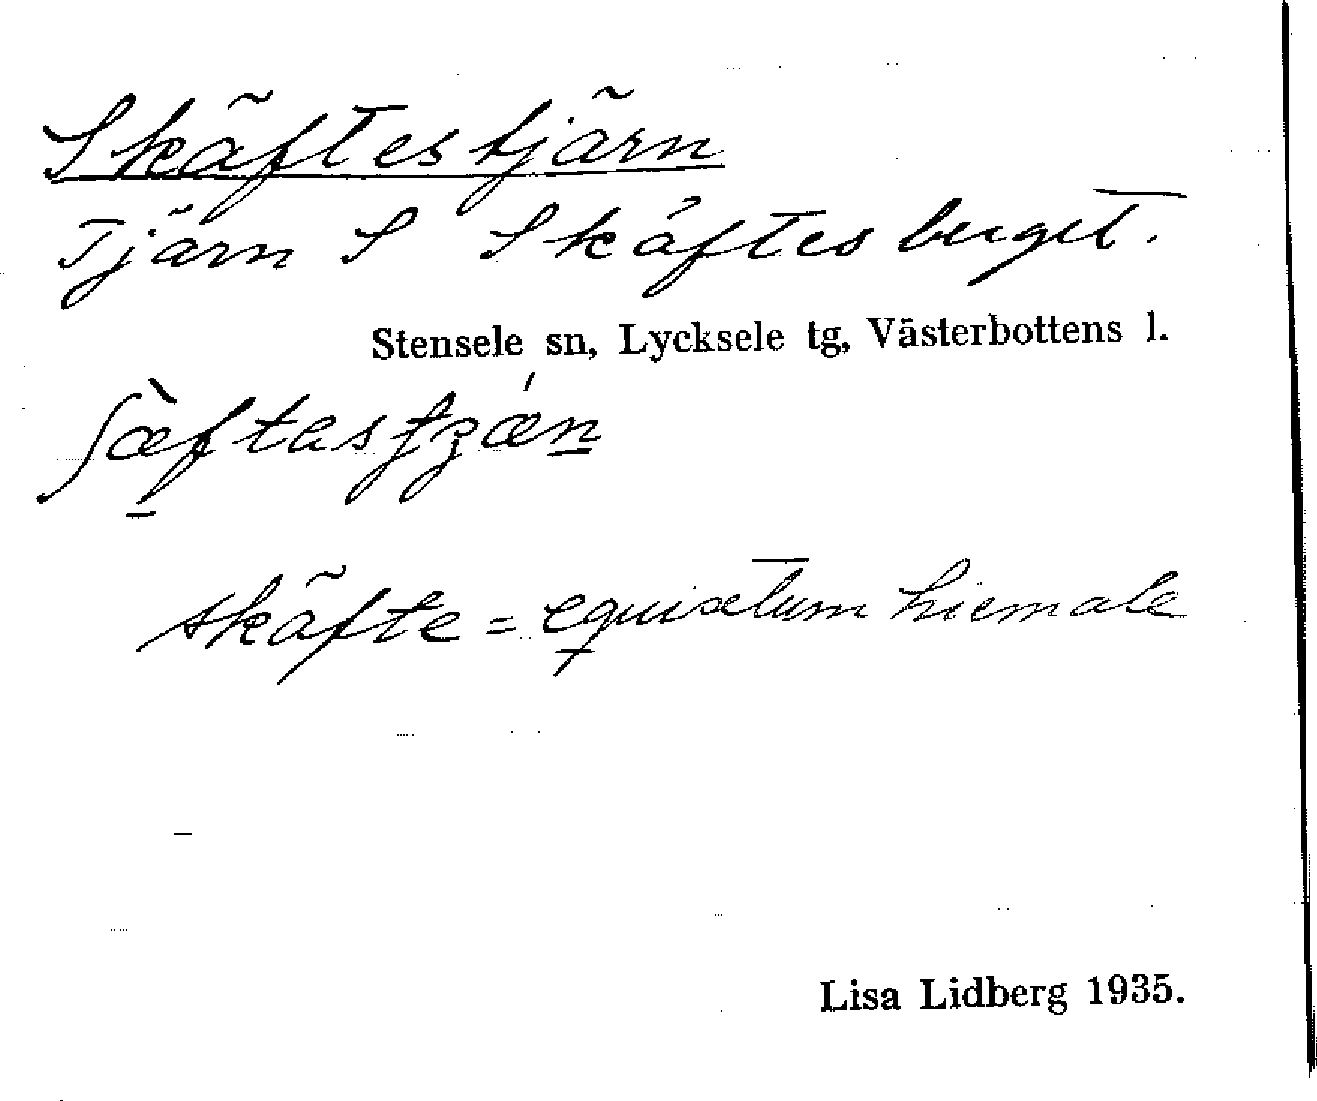 Skäftestjärn
Tjärn S Skäftesberget.
Stensele sn, Lycksele tg, Västerbottens l.
skäfte = equisetum hiemale
Lisa Lidberg 1935.